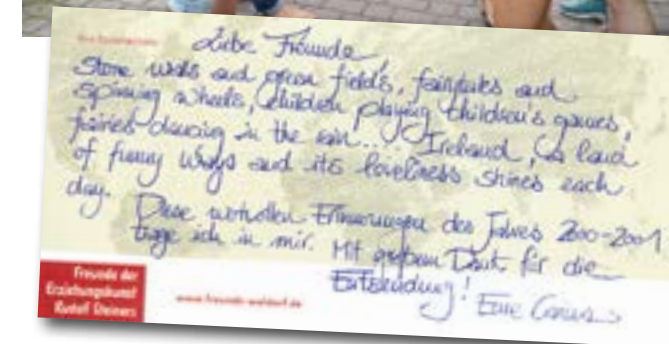 Liebe Freunde,
Stone walls and green fields, fairytales and
spinning wheels, children playing children's games,
fairies dancing in the rain... Ireland, a land
of funny ways and its loveliness shines each
day. Diese wertvollen Erinnerungen des Jahres 2000-2001
trage ich in mir. Mit großem Dank für die
Entsendung!
Freunde der
Erziehungskunst
Rudolf Steiners
www.freunde-waldorf.de